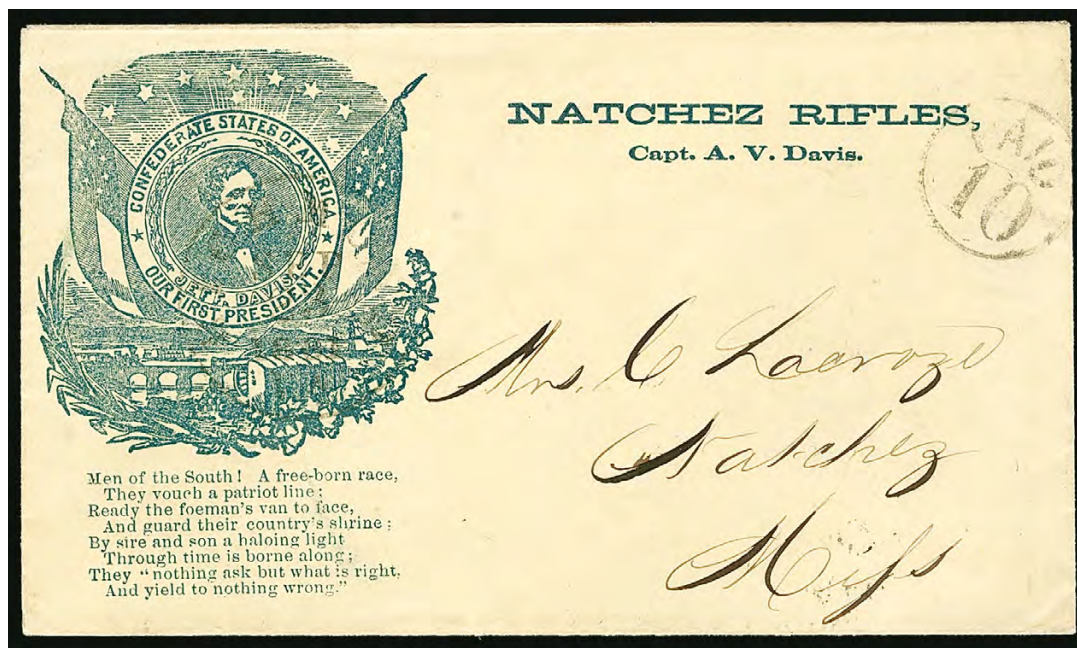 CONFEDERATE STATES OF AMERICA.
JEFF. DAVIS.
OUR FIRST PRESIDENT.
NATCHEZ RIFLES,
Capt. A. V. Davis.
PAID
10
Mrs. C Lacroze
Natchez
Miss
Men of the South! A free-born race,
They vouch a patriot line;
Ready the foeman's van to face,
And guard their country's shrine;
By sire and son a haloing light
Through time is borne along;
They "nothing ask but what is right,
And yield to nothing wrong."